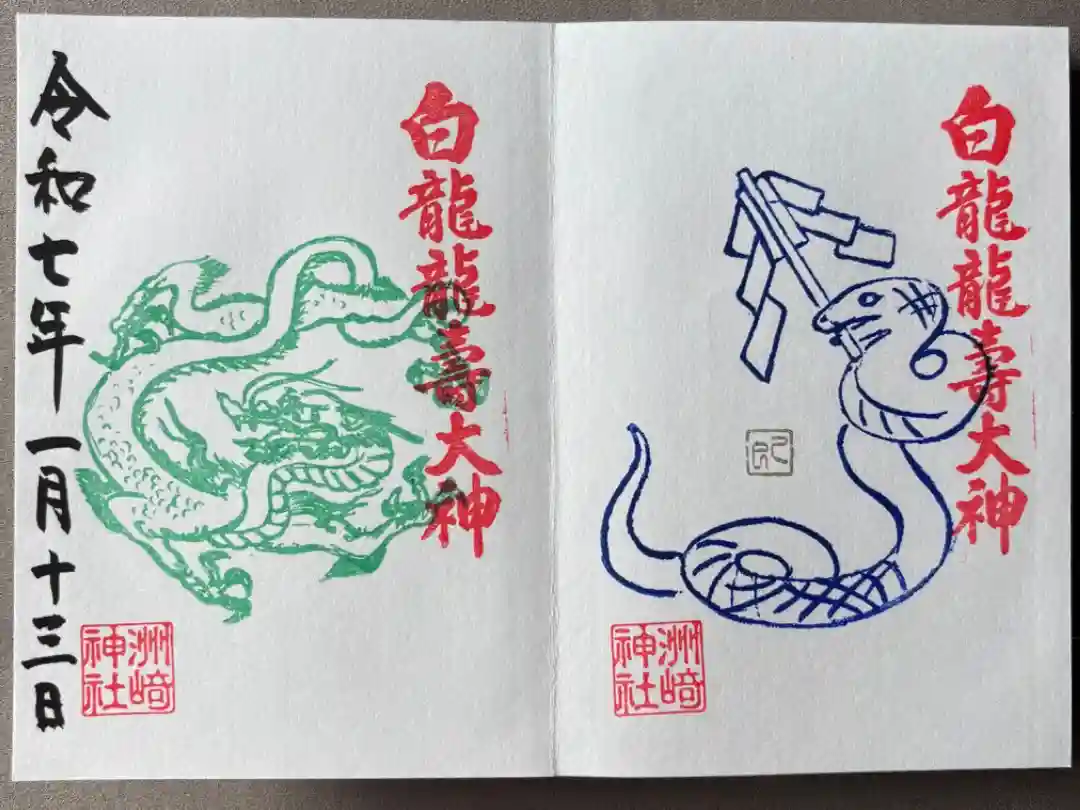 白龍龍壽大神
洲崎神社
白龍龍壽大神
洲崎神社
令和七年一月十三日